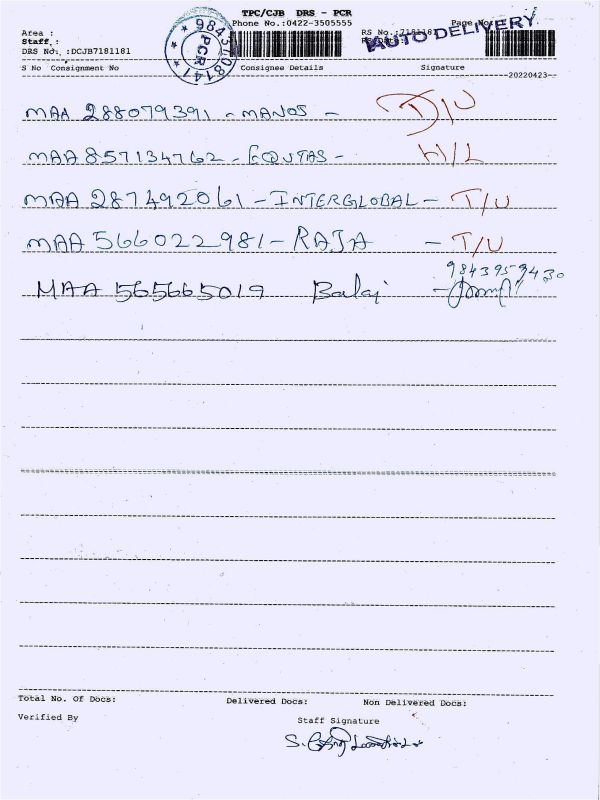 TPC/CJB DRS - PCR
Phone No.:0422-3505555
Area :
Staff :
DRS No. :DCJB7181181
RS No.:7181181
Page No
AUTO DELIVERY
98430814
PCR
S No Consignment No Consignee Details Signature
--20220423--
MAA 288079391 - MANOS -
MAA 857134762 - EQUTAS - H/L
MAA 287492061 - INTERGLOBAL - T/U
MAA 566022981 - RAJA - T/U
9843959430
MAA 565665019 Balaj -
Total No. Of Docs: Delivered Docs: Non Delivered Docs:
Verified By Staff Signature